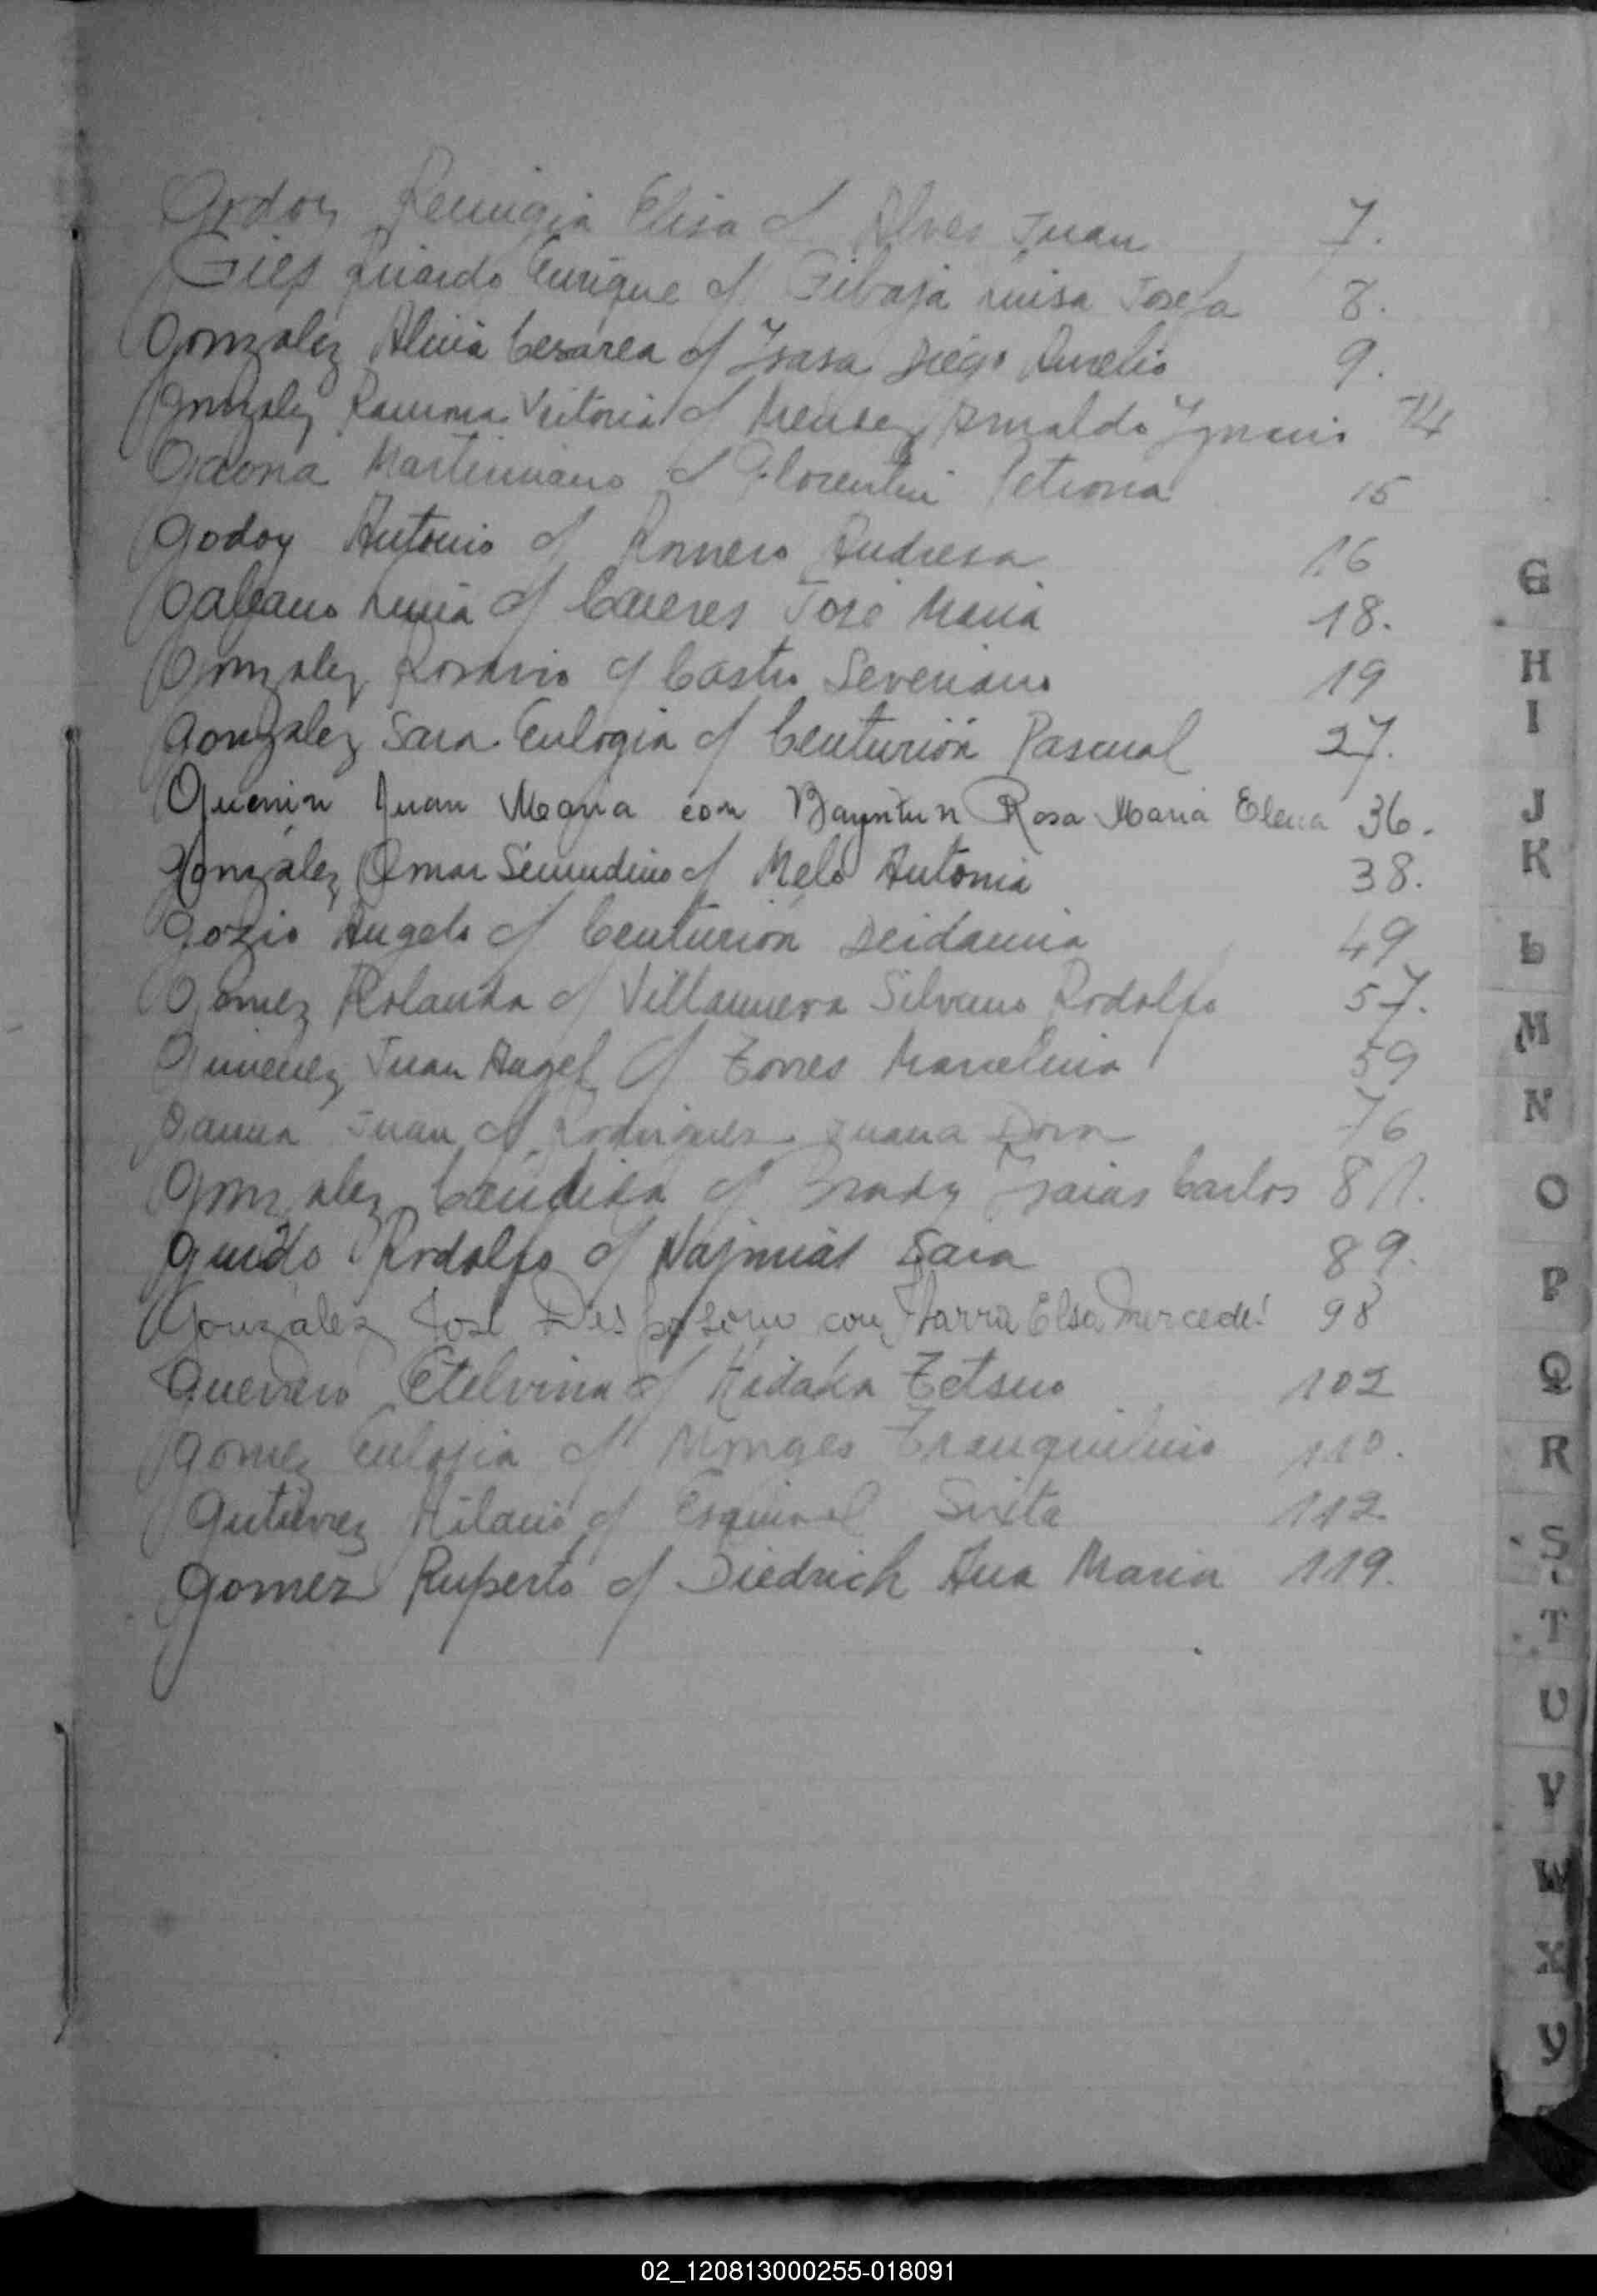 Godoy Remigia Elisa c/ Alves Juan 7.
Gies Ricardo Enrique c/ Gibaja Luisa Josefa 8.
Gonzalez Alicia Cesarea c/ Ysasa Diego Aurelio 9.
Gonzalez Ramona Vitoria c/ Arnaldo Ygnacio 14
Gaona Martiniano c/ Florentin Petrona 15
Godoy Antonio c/ Romero Andresa 16
Galeano Lucia c/ Caceres José Maria 18.
Gonzalez Rosario c/ Castro Severiano 19
Gonzalez Sara Eulogia c/ Centurión Pascual 27.
Guenin Juan Maria con Bayntun Rosa Maria Elena 36.
González Omar Secundino c/ Melo Antonia 38.
Gozio Angelo c/ Centurión Deidamia 49
Gomez Rolanda c/ Villanueva Silvano Rodolfo 57.
Gimenez Juan Angel c/ Torres Marcelina 59
Juan c/ Rodriguez Juana Dora 76
Gonzalez Candida c/ Ysaias Carlos 81.
Guido Rodolfo c/ Sara 89.
González José con Ybarra Elsa Mercede 98
Guerrero Etelvina c/ Hidaka Tetsuo 102
Gomez Eulogia c/ Monges Tranquilino 110.
Gutierrez Hilario c/ Esquivel 112
Gomez Ruperto c/ Diedrich Ana Maria 119.
G
H
I
J
K
L
M
N
O
P
Q
R
S
T
U
V
W
X
Y
02_120813000255-018091